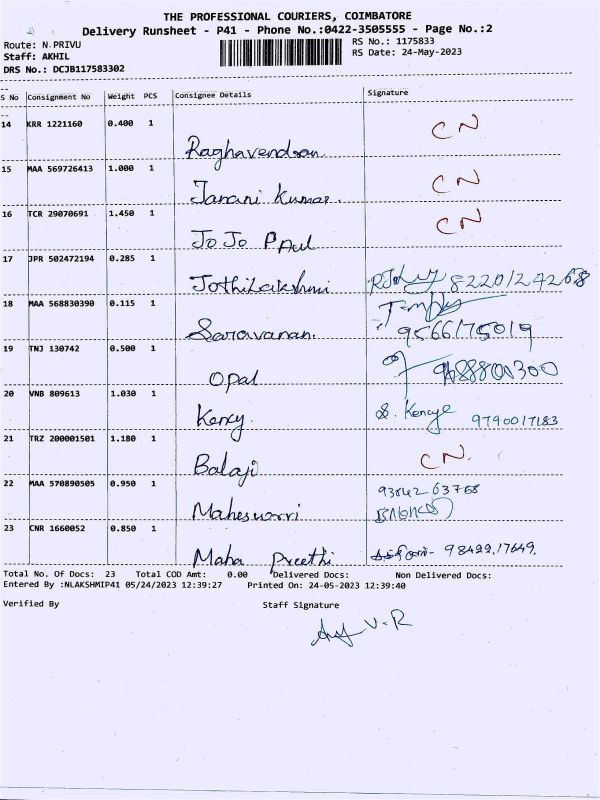 THE PROFESSIONAL COURIERS, COIMBATORE
Delivery Runsheet - P41 - Phone No.:0422-3505555 - Page No.:2
Route: N.PRIVU RS No.: 1175833
Staff: AKHIL RS Date: 24-May-2023
DRS No.: DCJB117583302
S No Consignment No Weight PCS Consignee Details Signature
14 KRR 1221160 0.400 1 CN
Raghavendran
15 MAA 569726413 1.000 1 CN
Janani Kumar.
16 TCR 29070691 1.450 1 CN
JoJo Paul
17 JPR 502472194 0.285 1
JothiLakshmi 8220124268
18 MAA 568830390 0.115 1
Saravanan. 9566175019
19 TNJ 130742 0.500 1
Opal
20 VNB 809613 1.030 1
Kency. 9790017183
21 TRZ 200001501 1.180 1 CN.
Balaji
22 MAA 570890505 0.950 1
Maheswari
23 CNR 1660052 0.850 1
Maha Preethi 98422.17649.
Total No. Of Docs: 23 Total COD Amt: 0.00 Delivered Docs: Non Delivered Docs:
Entered By :NLAKSHMIP41 05/24/2023 12:39:27 Printed On: 24-05-2023 12:39:40
Verified By Staff Signature
V.R